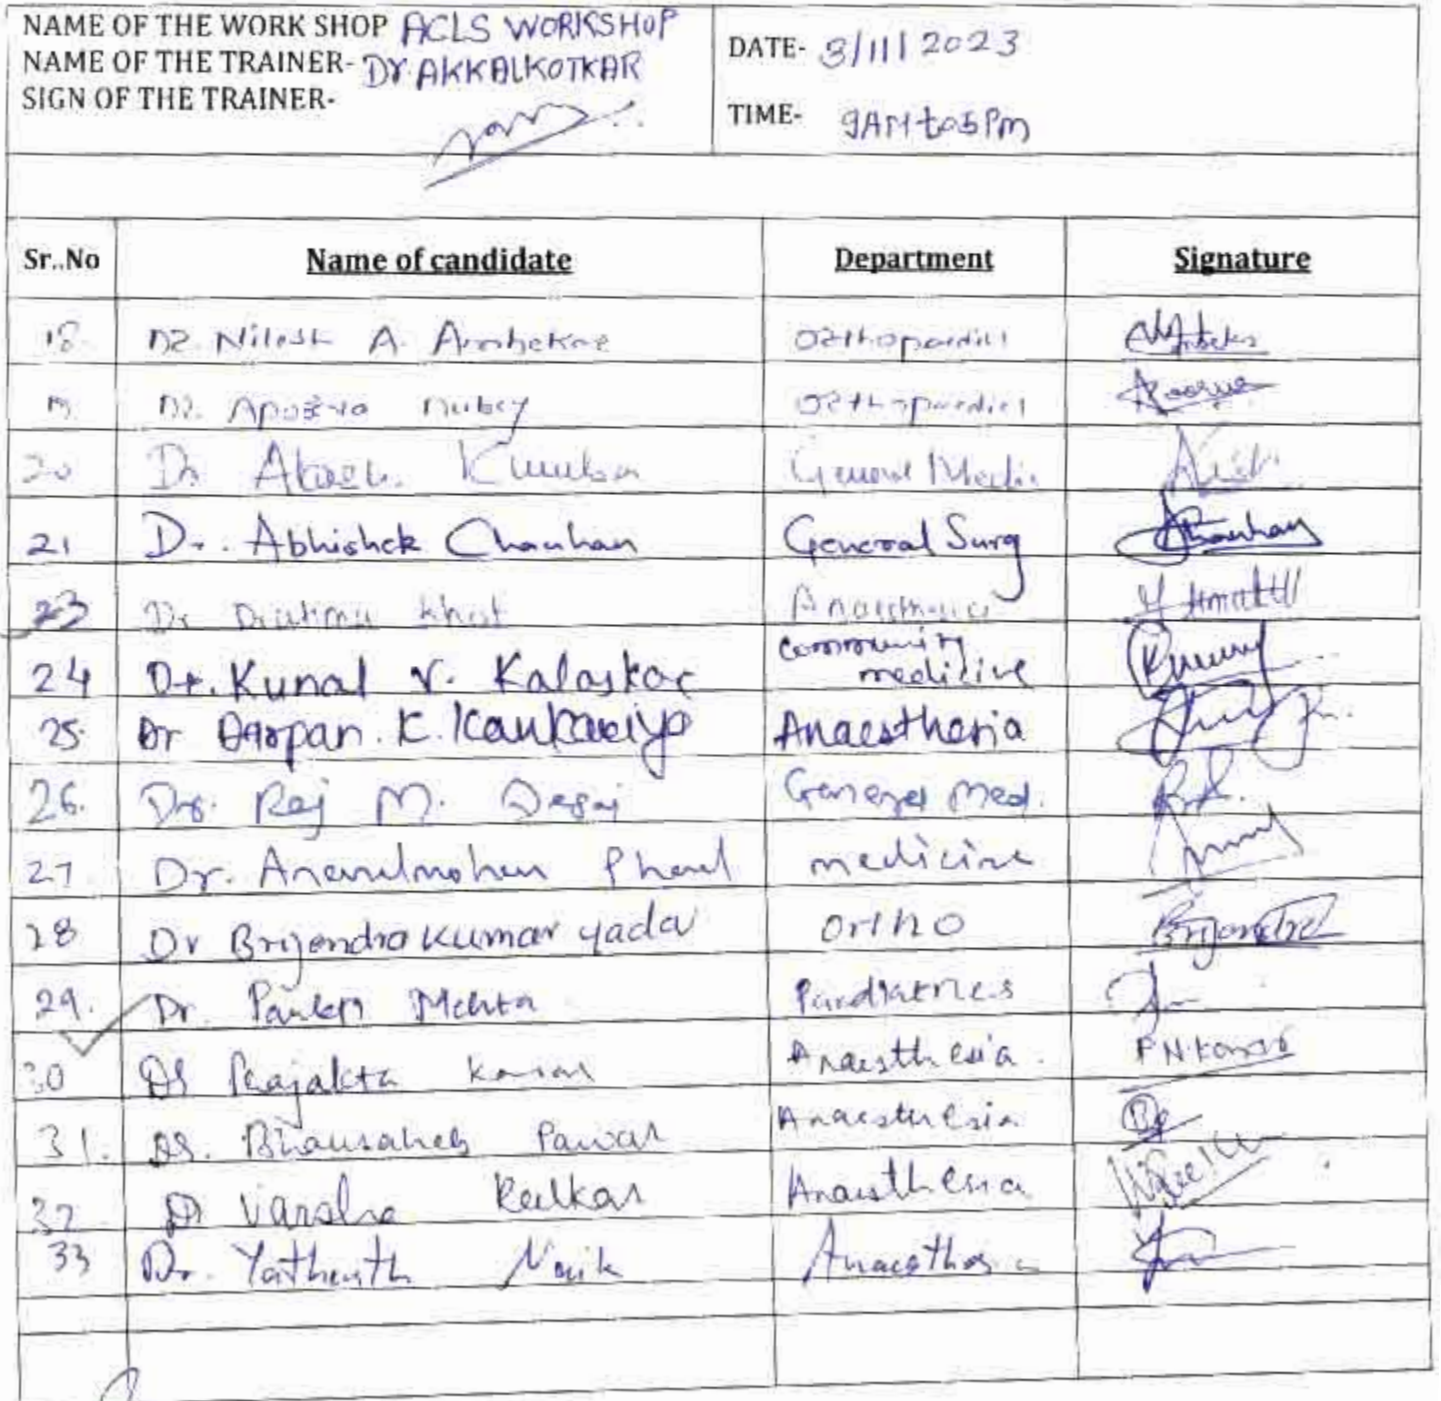 NAME OF THE WORK SHOP ACLS WORKSHOP
NAME OF THE TRAINER- Dr. AKKALKOTKAR
SIGN OF THE TRAINER-
DATE- 3/11/2023
TIME- 9AM to 5Pm
Sr..No Name of candidate Department Signature
18 Dr. Nilesh A. Orthopaedics
19 Dr. Apoorva Dubey Orthopaedics
20 Dr Akash General Medi
21 Dr. Abhishek Chauhan General Surg Chauhan
23 Dr Pratima Khot Anaesthesia
24 Dr. Kunal V. Kalaskar community medicine
25. Dr Darpan. K. Anaesthesia
26. Dr. Raj M. Desai General Med.
27 Dr. Anandmohan medicine
28 Dr Brijendrakumar yadav ortho Brijendra
29. Dr. Mehta Paediatrics
30 Dr Prajakta Anaesthesia
31. Dr. Bhausaheb Pawar Anaesthesia
32 Dr Varsha Kelkar Anaesthesia
33 Dr. Naik